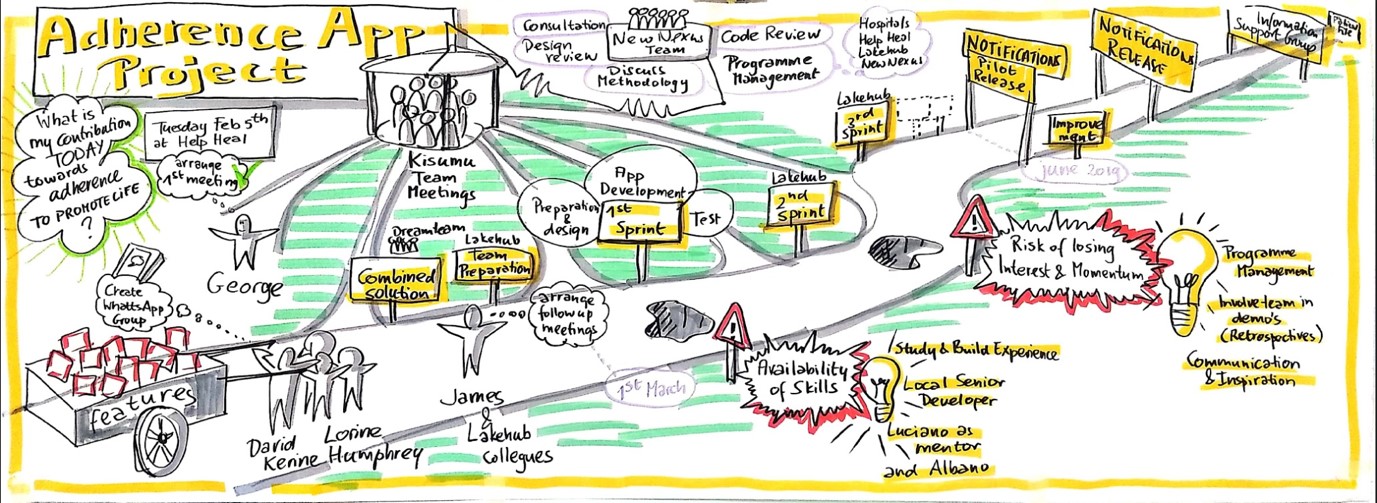 Adherence App
Project
Consultation
Design
review
New Nexus
Team
Discuss
Methodology
Code Review
Programme
Management
Hospitals
Help Heal
Lakehub
New Nexus
NOTIFICATIONS
Pilot
Release
NOTIFICATIONS
RELEASE
Information
Support Group
What is
my contribution
TODAY
towards
adherence
TO PROMOTE LIFE
?
Tuesday Feb 5th
at Help Heal
arrange
1st meeting
Kisumu
Team
Meetings
Lakehub
3rd
Sprint
Improve
ment
June 2019
App
Development
Preparation
&
design
1st
Sprint
Test
Lakehub
2nd
Sprint
Dreamteam
Combined
Solution
Lakehub
Team
Preparation
George
Create
WhattsApp
Group
arrange
follow up
meetings
1st March
features
David
Kenne
Lorine
Humphrey
James
&
Lakehub
Collegues
Availability
of Skills
Study & Build Experience
Local Senior
Developer
Luciano as
mentor
and Albano
Risk of losing
Interest & Momentum
Programme
Management
Involve team in
demo's
(Retrospectives)
Communication
& Inspiration